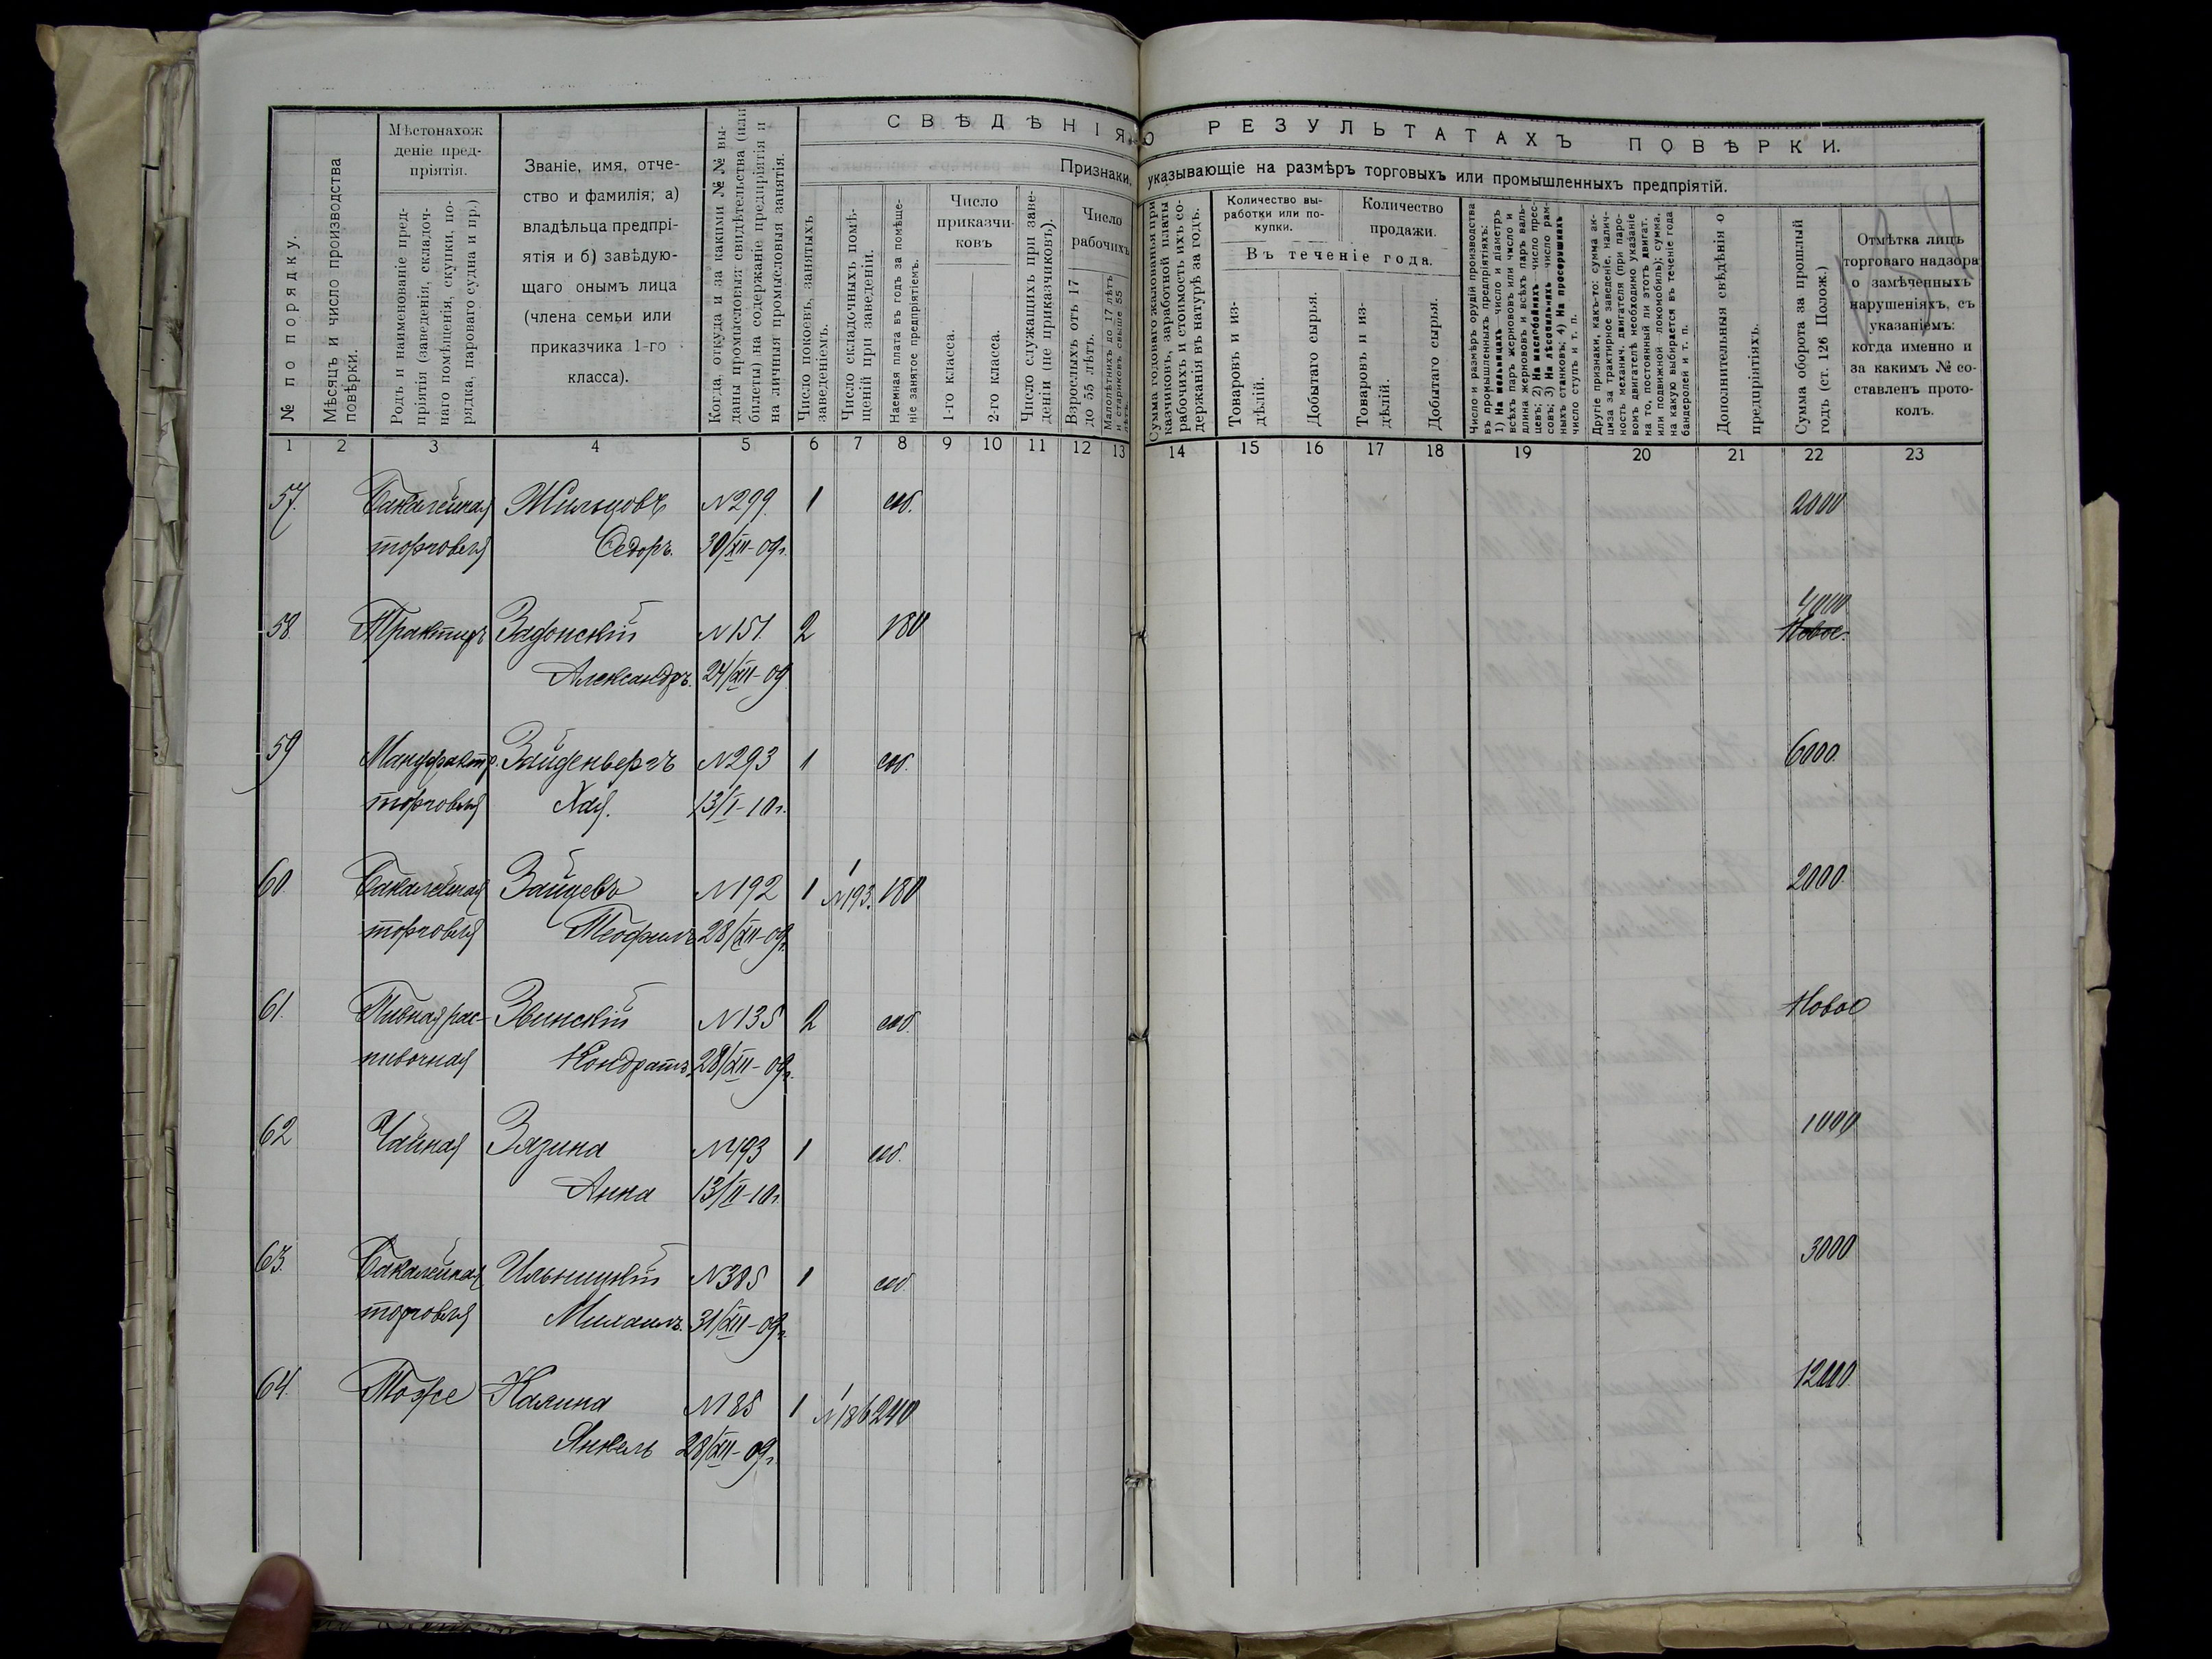 СВѢДѢНІЯ О РЕЗУЛЬТАТАХЪ ПОВѢРКИ.
Признаки, указывающіе на размѣръ торговыхъ или промышленныхъ предпріятій.
№ по порядку.
Мѣсяцъ и число производства
повѣрки.
Мѣстонахож
деніе пред-
пріятія.
Родъ и наименованіе пред-
пріятія (заведенія, складоч-
наго помѣщенія, скупки, по-
рядка, парового судна и пр.)
Званіе, имя, отче-
ство и фамилія; а)
владѣльца предпрі-
ятія и б) завѣдую-
щаго онымъ лица
(члена семьи или
приказчика 1-го
класса).
Когда, откуда и за какими №№ вы-
даны промысловыя свидѣтельства (или
билеты) на содержаніе предпріятія и
на личныя промысловыя занятія.
Число покоевъ, занятыхъ
заведеніемъ.
Число складочныхъ помѣ-
щеній при заведеніи.
Наемная плата въ годъ за помѣще-
ніе занятое предпріятіемъ.
Число
приказчи-
ковъ
1-го класса.
2-го класса.
Число служащихъ при заве-
деніи (не приказчиковъ).
Число
рабочихъ
Взрослыхъ отъ 17
до 55 лѣтъ.
Малолѣтнихъ до 17 лѣтъ
и стариковъ свыше 55
лѣтъ.
Сумма годового жалованья при
казчиковъ, заработной платы
рабочихъ и стоимость ихъ со-
держанія въ натурѣ за годъ.
Количество вы-
работки или по-
купки.
Количество
продажи.
Въ теченіе года.
Товаровъ и из-
дѣлій.
Добытаго сырья.
Товаровъ и из-
дѣлій.
Добытаго сырья.
Число и размѣръ орудій производства
въ промышленныхъ предпріятіяхъ:
1) На мельницахъ число и діаметръ
всѣхъ паръ жернововъ или число и
длина жернововъ и всѣхъ паръ валь-
цевъ; 2) На маслобойняхъ число прес-
совъ; 3) На лѣсопильняхъ число рам-
ныхъ станковъ; 4) На просорушняхъ
число ступъ и т. п.
Другіе признаки, какъ-то: сумма ак-
циза за трактирное заведеніе, налич-
ность механич. двигателя (при паро-
вомъ двигателѣ необходимо указаніе
на то, постоянный ли этотъ двигат.
или подвижной локомобиль); сумма,
на какую выбирается въ теченіе года
бандеролей и т. п.
Дополнительныя свѣдѣнія о
предпріятіяхъ.
Сумма оборота за прошлый
годъ (ст. 126 Полож.)
Отмѣтка лицъ
торговаго надзора
о замѣченныхъ
нарушеніяхъ, съ
указаніемъ:
когда именно и
за какимъ № со-
ставленъ прото-
колъ.
1 2 3 4 5 6 7 8 9 10 11 12 13 14 15 16 17 18 19 20 21 22 23
57. Бакалейная Жильцовъ N299. 1 соб. 2000
торговля Ѳедоръ. 30/XII-09г.
4000
58 Трактиръ Задонскій N151. 2 180 Новое.
Александръ. 24/XII-09
59 Мануфактр. Зайденбергъ N293 1 соб. 6000.
торговля Хая. 13/I-10г.
1
60. Бакалейная Зайцевъ N192 1 N193. 180 2000.
торговля Теофилъ 28/XII-09г.
61. Пивная рас- Звинскій N135 2 соб. Новое
пивочная Кондратъ 28/XII-09г.
62 Чайная Зязина N493 1 соб. 1000
Анна 13/II-10г.
63. Бакалейная Ильницкій N385 1 соб. 3000
торговля Михаилъ. 31/XII-09г.
1
64. Тоже Калина N185 1 N186 240 12000.
Янкель 28/XII-09г.